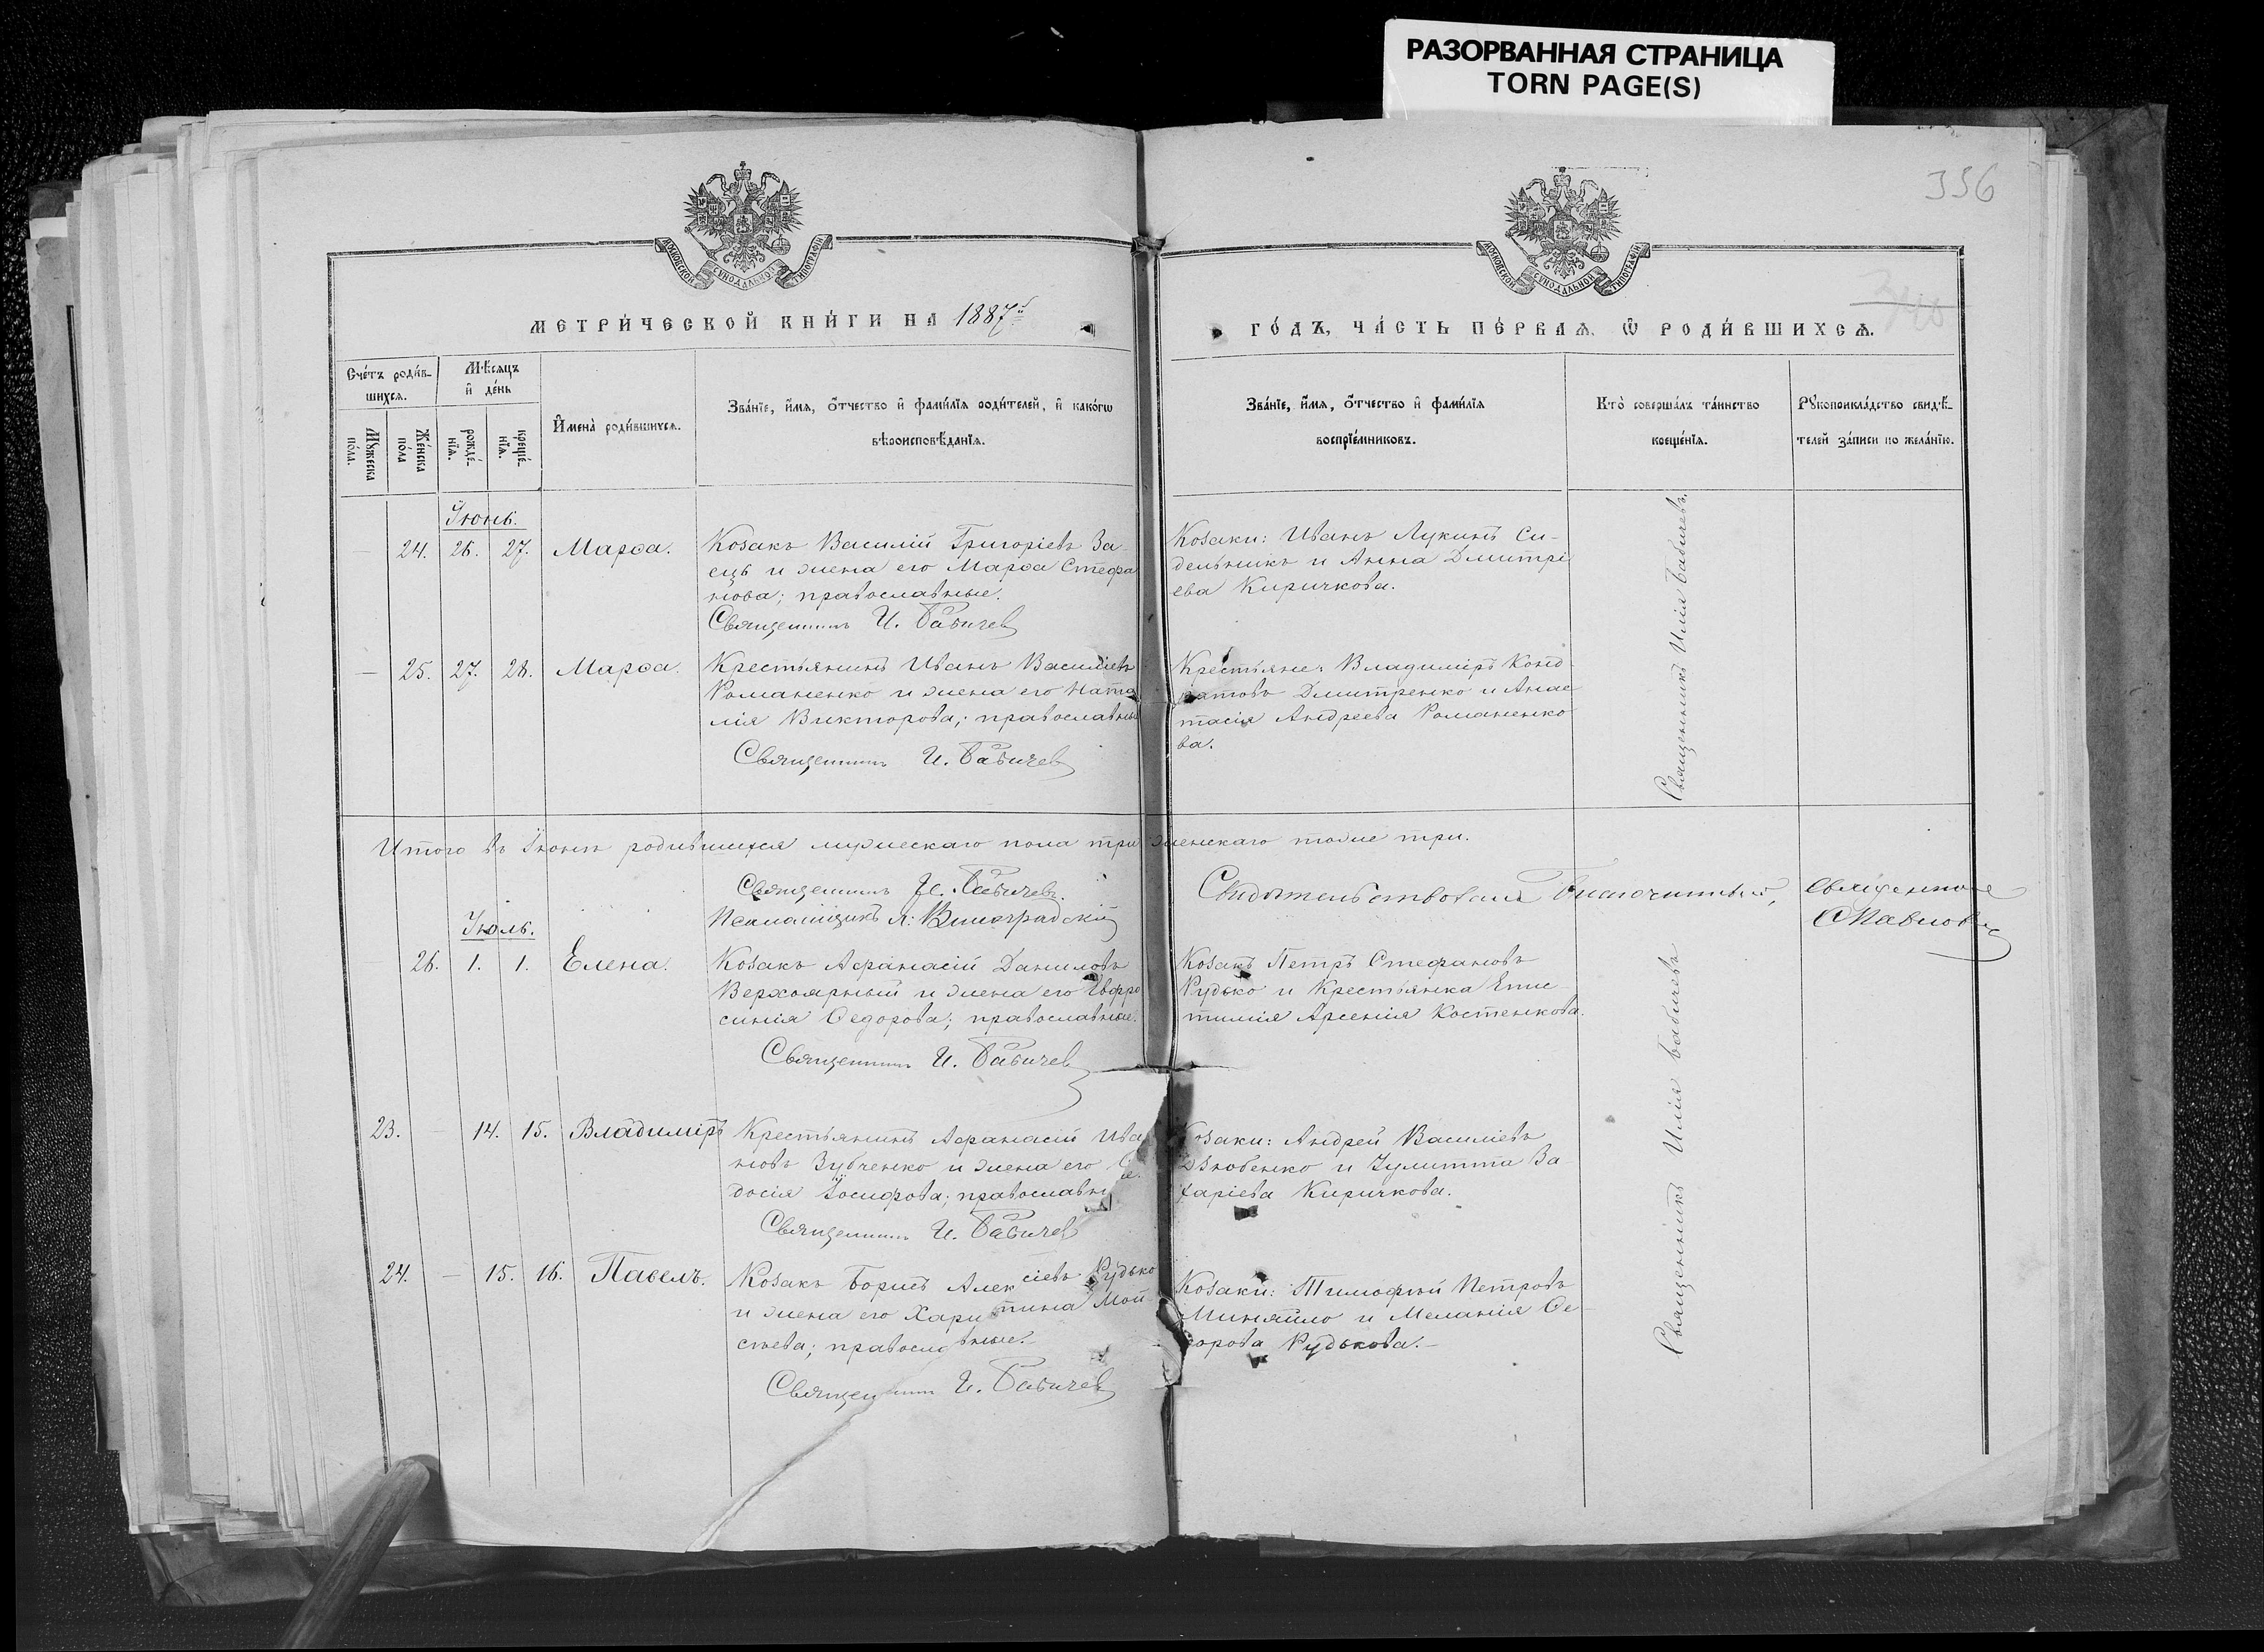 РАЗОРВАННАЯ СТРАНИЦА
TORN PAGE(S)
336
МОСКОВСКОЙ СѴНОДАЛЬНОЙ ТИПОГРАФІИ
МОСКОВСКОЙ СѴНОДАЛЬНОЙ ТИПОГРАФІИ
МЕТРИ́ЧЕСКОЙ КНИ́ГИ НА 1887й
ГО́ДЪ, ЧА́СТЬ ПЕ́РВАЯ, Ѿ РОДИ́ВШИХСѦ.
Сче́тъ роди́в-
шихсѧ.
Мꙋ́жеска по́ла.
Же́нска по́ла
Мѣ́сѧцъ и҆ де́нь
рожде́-
нїѧ.
креще́-
нїѧ.
И҆мена̀ роди́вшихсѧ.
Зва́нїе, и҆́мѧ, ѻ҆́тчество и҆ фами́лїѧ роди́телей, и҆ како́гѡ
вѣроисповѣ́данїѧ.
Зва́нїе, и҆́мѧ, ѻ҆́тчество и҆ фами́лїѧ
воспрїе́мниковъ.
Кто̀ соверша́лъ та́инство
креще́нїѧ.
Рꙋкоприкла́дство свидѣ́-
телей за́писи по жела́нїю.
Іюнь.
24. 26. 27. Марѳа.
Козакъ Василій Григоріевъ За-
ецъ и жена его Марѳа Стефа
нова; православные.
Священникъ И. Бабичев
Козаки: Иванъ Лукинъ Си-
дельникъ и Анна Дмитрі
ева Киричкова.
— 25. 27. 28. Марѳа.
Крестьянинъ Иванъ Василіевъ
Романенко и жена его Ната
лія Викторова; православные
Священникъ И. Бабичев
Крестьяне: Владиміръ Конд
ратовъ Дмитренко и Анас
тасія Андреева Романенко
ва.
Священникъ Илія Бабичевъ.
Итого въ Іюнѣ родившихся мужескаго пола три женскаго тоже три.
Священникъ И. Бабичевъ.
Псаломщикъ Л. Виноградскій
Свидѣтельствовалъ Благочинный, Священникъ
Павловъ
Іюль.
26. 1. 1. Елена.
Козакъ Аѳанасій Даниловъ
Верхоярный и жена его Евфро
синія Ѳедорова; православные.
Священникъ И. Бабичев
Козакъ Петръ Стефановъ
Рудько и Крестьянка Епис-
тимія Арсенія Костенкова.
23. — 14. 15. Владиміръ
Крестьянинъ Аѳанасій Ива
новъ Зубченко и жена его
досія Іосифова; православные.
Священникъ И. Бабичев
Козаки: Андрей Василіевъ
Дзюбенко и Іулитта За
харіева Киричкова.
24. — 15. 16. Павелъ.
Козакъ Борисъ Алексіевъ Рудько
и жена его Харитина Мои
сѣева; православные.
Священникъ И. Бабичев
Козаки: Тимоѳій Петровъ
Миняйло и Меланія Ѳе
дорова Рудькова.
Священникъ Илія Бабичевъ